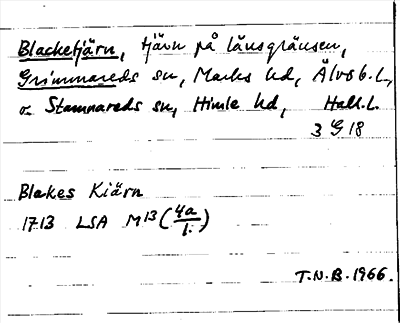 Blacketjärn, tjärn på länsgränsen,
Grimmareds sn, Marks hd, Älvsb. l.,
o. Stamnareds sn, Himle hd, Hall. l.
3 G 18
Blakes Kiärn
1713 LSA M13 (4a/1:)
T.N.B. 1966.